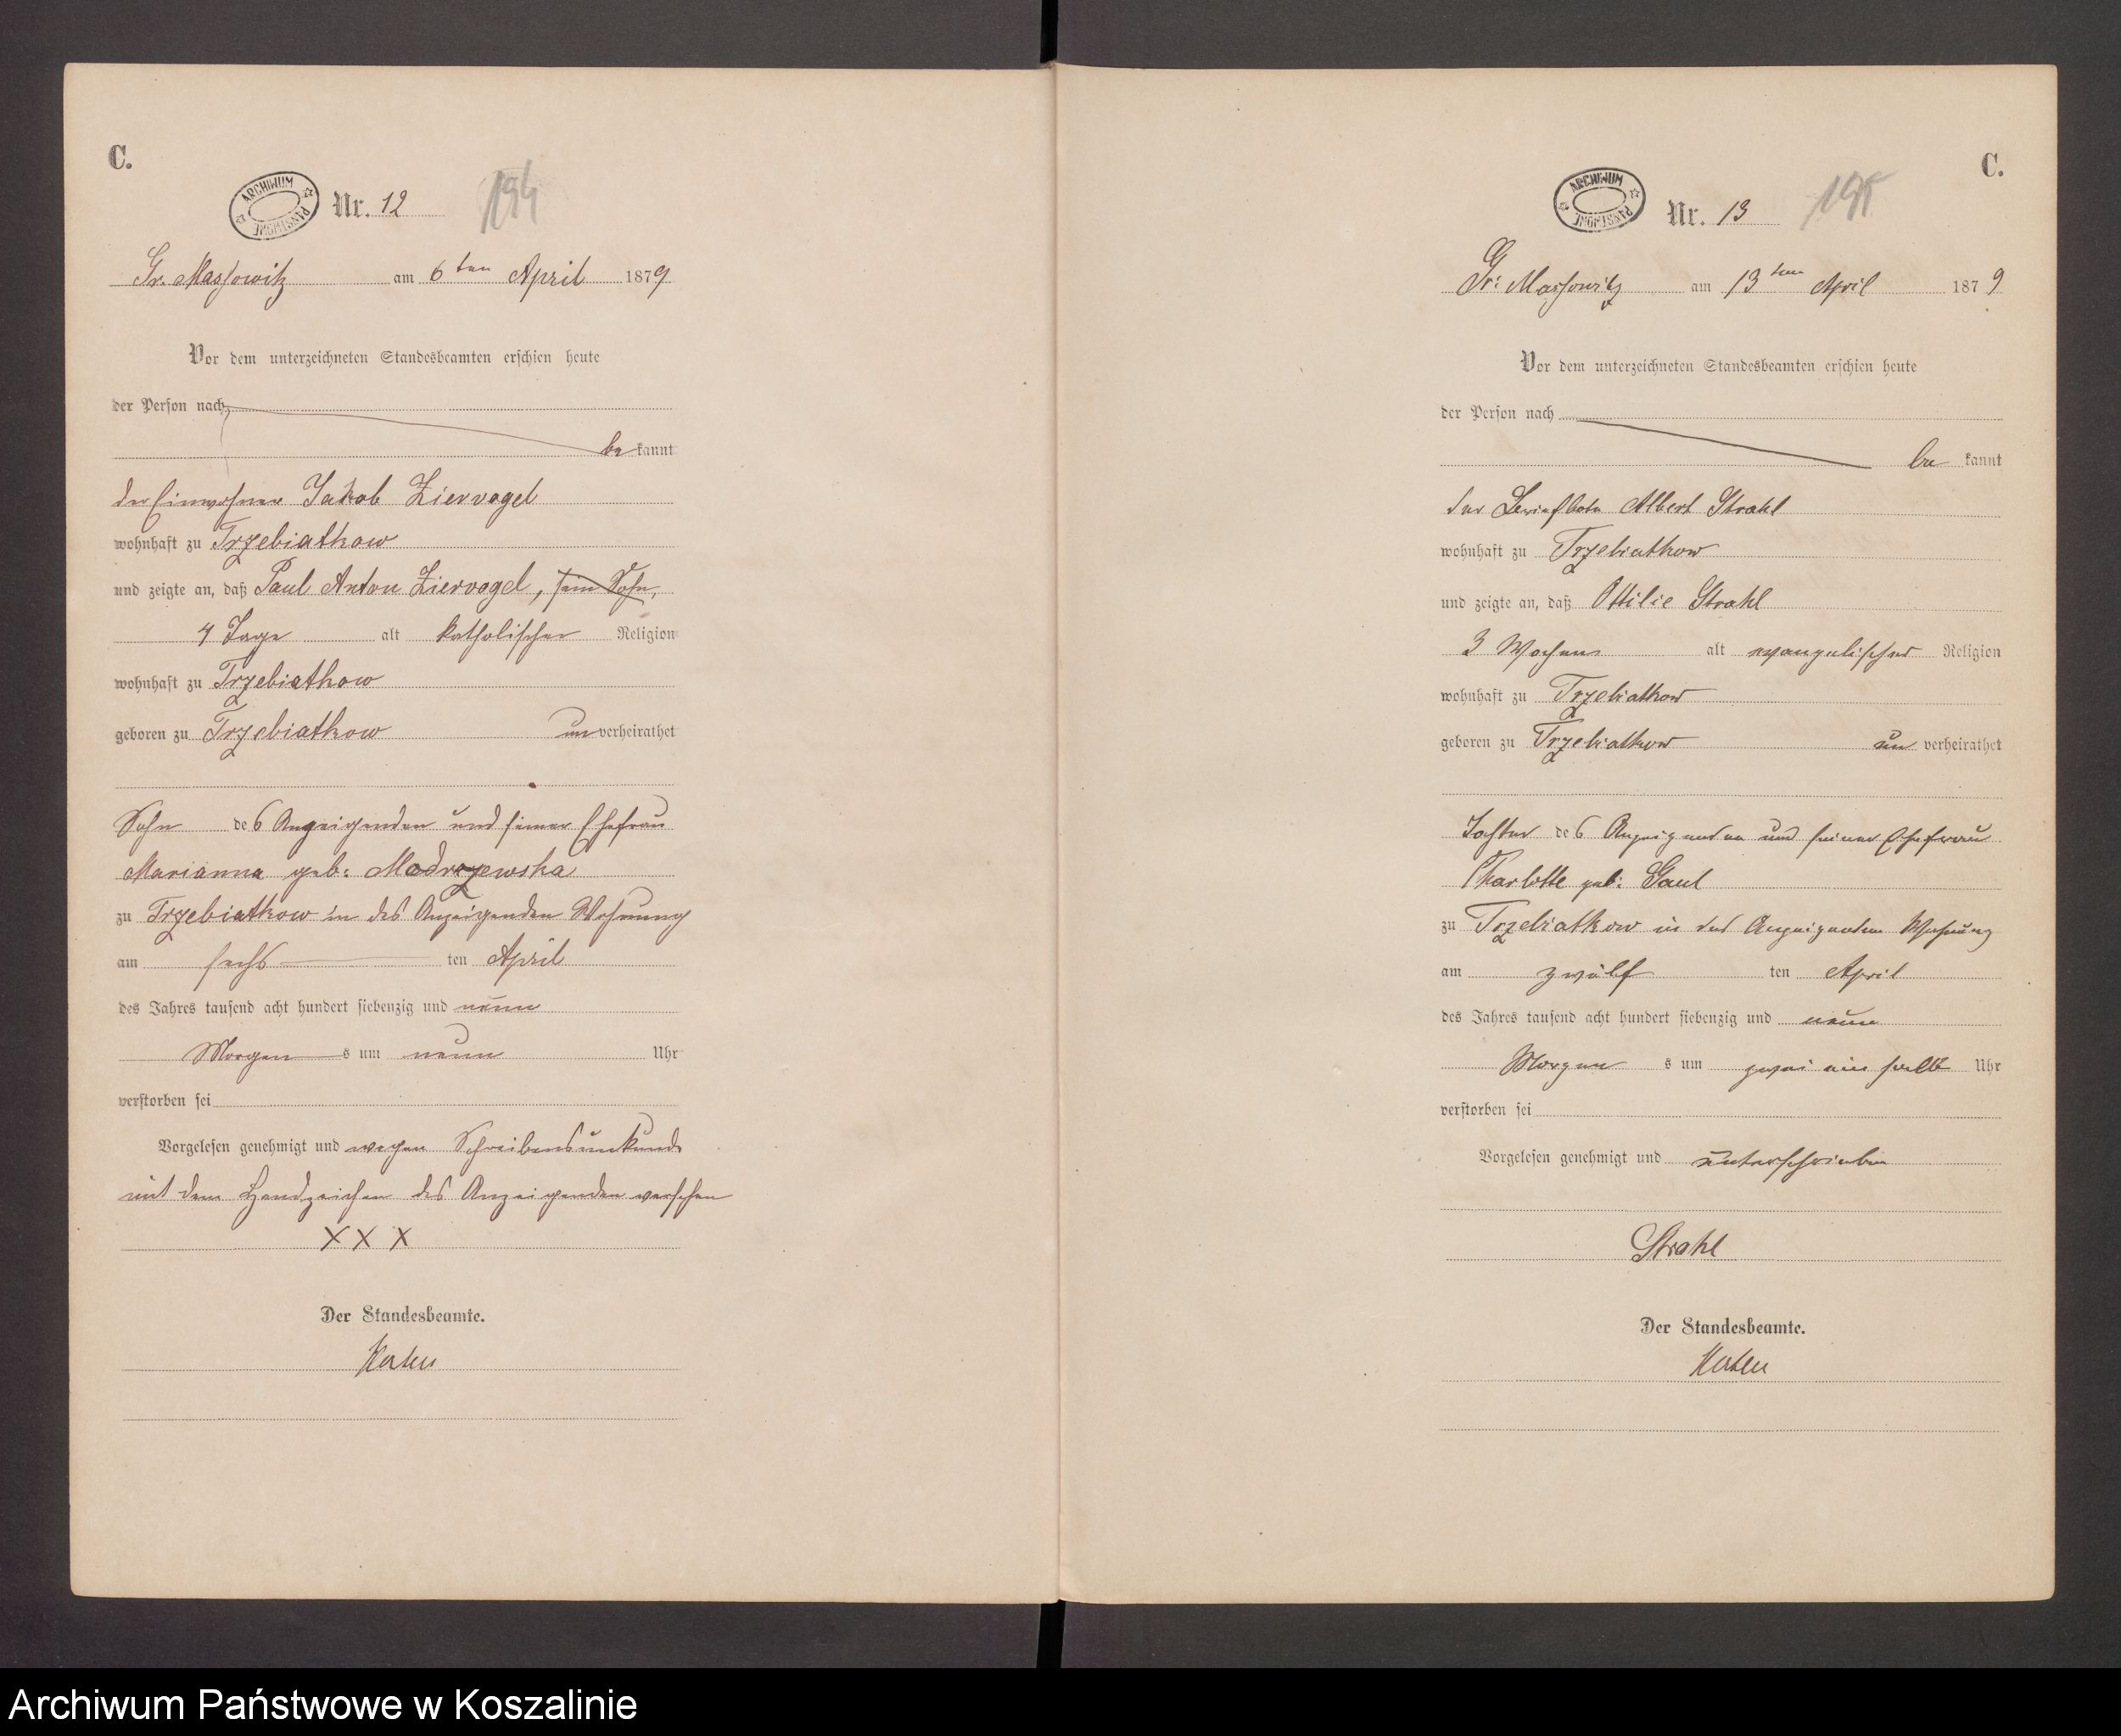 C.
ARCHIWUM PAŃSTWOWE
Nr. 12
194
Gr. Massowitz am 6ten April 1879
Vor dem unterzeichneten Standesbeamten erschien heute
der Person nach
bekannt
der Einwohner Jakob Ziervogel
wohnhaft zu Trzebiatkow
und zeigte an, daß Paul Anton Ziervogel, sein Sohn,
4 Tage alt katholischer Religion
wohnhaft zu Trzebiatkow
geboren zu Trzebiatkow unverheirathet
Sohn des Anzeigenden und seiner Ehefrau
Marianna geb: Modrzewska
zu Trzebiatkow in des Anzeigenden Wohnung
am sechs ten April
des Jahres tausend acht hundert siebenzig und neun
Morgens um neun Uhr
verstorben sei
Vorgelesen genehmigt und wegen Schreibensunkunde
mit dem Handzeichen des Anzeigenden versehen
XXX
Der Standesbeamte.
C.
ARCHIWUM PAŃSTWOWE
Nr. 13
195
Gr: Massowitz am 13ten April 1879
Vor dem unterzeichneten Standesbeamten erschien heute
der Person nach
bekannt
der Albert Strahl
wohnhaft zu Trzebiatkow
und zeigte an, daß Ottilie Strahl
3 Wochen alt evangelischer Religion
wohnhaft zu Trzebiatkow
geboren zu Trzebiatkow unverheirathet
Tochter des Anzeigenden und seiner Ehefrau
Charlotte geb: Gaul
zu Trzebiatkow in des Anzeigenden Wohnung
am zwölf ten April
des Jahres tausend acht hundert siebenzig und neun
Morgens um zwei ein halb Uhr
verstorben sei
Vorgelesen genehmigt und unterschrieben
Strahl
Der Standesbeamte.
Archiwum Państwowe w Koszalinie